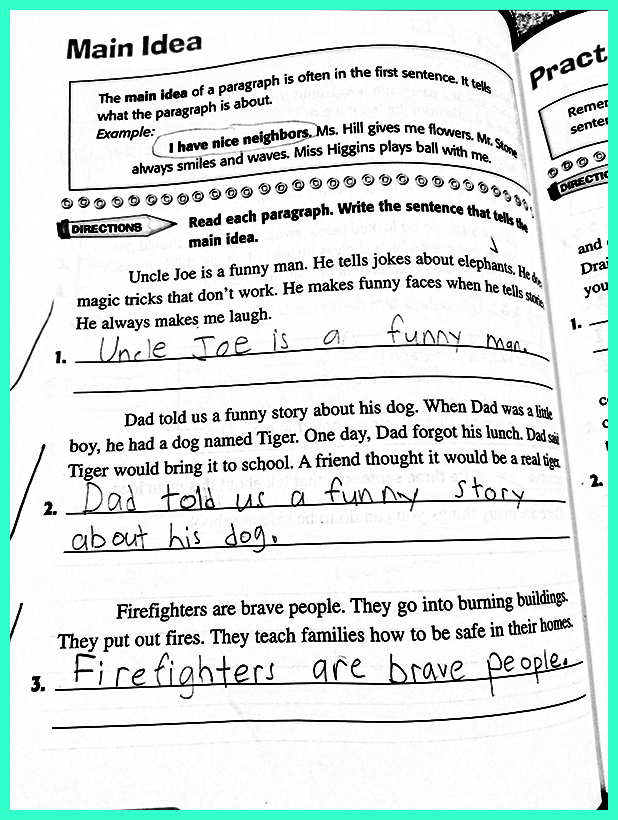 Main Idea
The main idea of a paragraph is often in the first sentence. It tells
what the paragraph is about.
Example:
I have nice neighbors. Ms. Hill gives me flowers. Mr. Stone
always smiles and waves. Miss Higgins plays ball with me.
DIRECTIONS
Read each paragraph. Write the sentence that tells the
main idea.
Uncle Joe is a funny man. He tells jokes about elephants. He does
magic tricks that don't work. He makes funny faces when he tells stories.
He always makes me laugh.
1. Uncle Joe is a funny man.
Dad told us a funny story about his dog. When Dad was a little
boy, he had a dog named Tiger. One day, Dad forgot his lunch. Dad said
Tiger would bring it to school. A friend thought it would be a real tiger.
2. Dad told us a funny story
about his dog.
Firefighters are brave people. They go into burning buildings.
They put out fires. They teach families how to be safe in their homes.
3. Firefighters are brave people.
Pract
Remer
senter
DIRECTIO
and
Drai
you
1.
2.